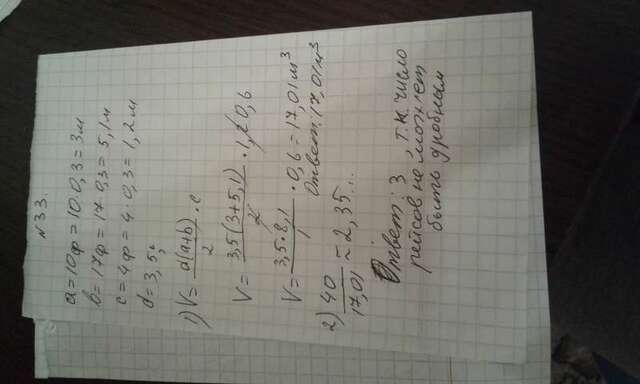 №33.
a = 10ф = 10·0,3 = 3м
b = 17ф = 17·0,3 = 5,1м
c = 4ф = 4·0,3 = 1,2м
d = 3,5;
1) V = d(a+b)/2 · c
V = 3,5(3+5,1)/2 · 1,2 0,6
V = 3,5·8,1/1 · 0,6 = 17,01м³
Ответ: 17,01м³
2) 40/17,01 ≈ 2,35...
Ответ: 3, т.к. число
рейсов не может
быть дробным